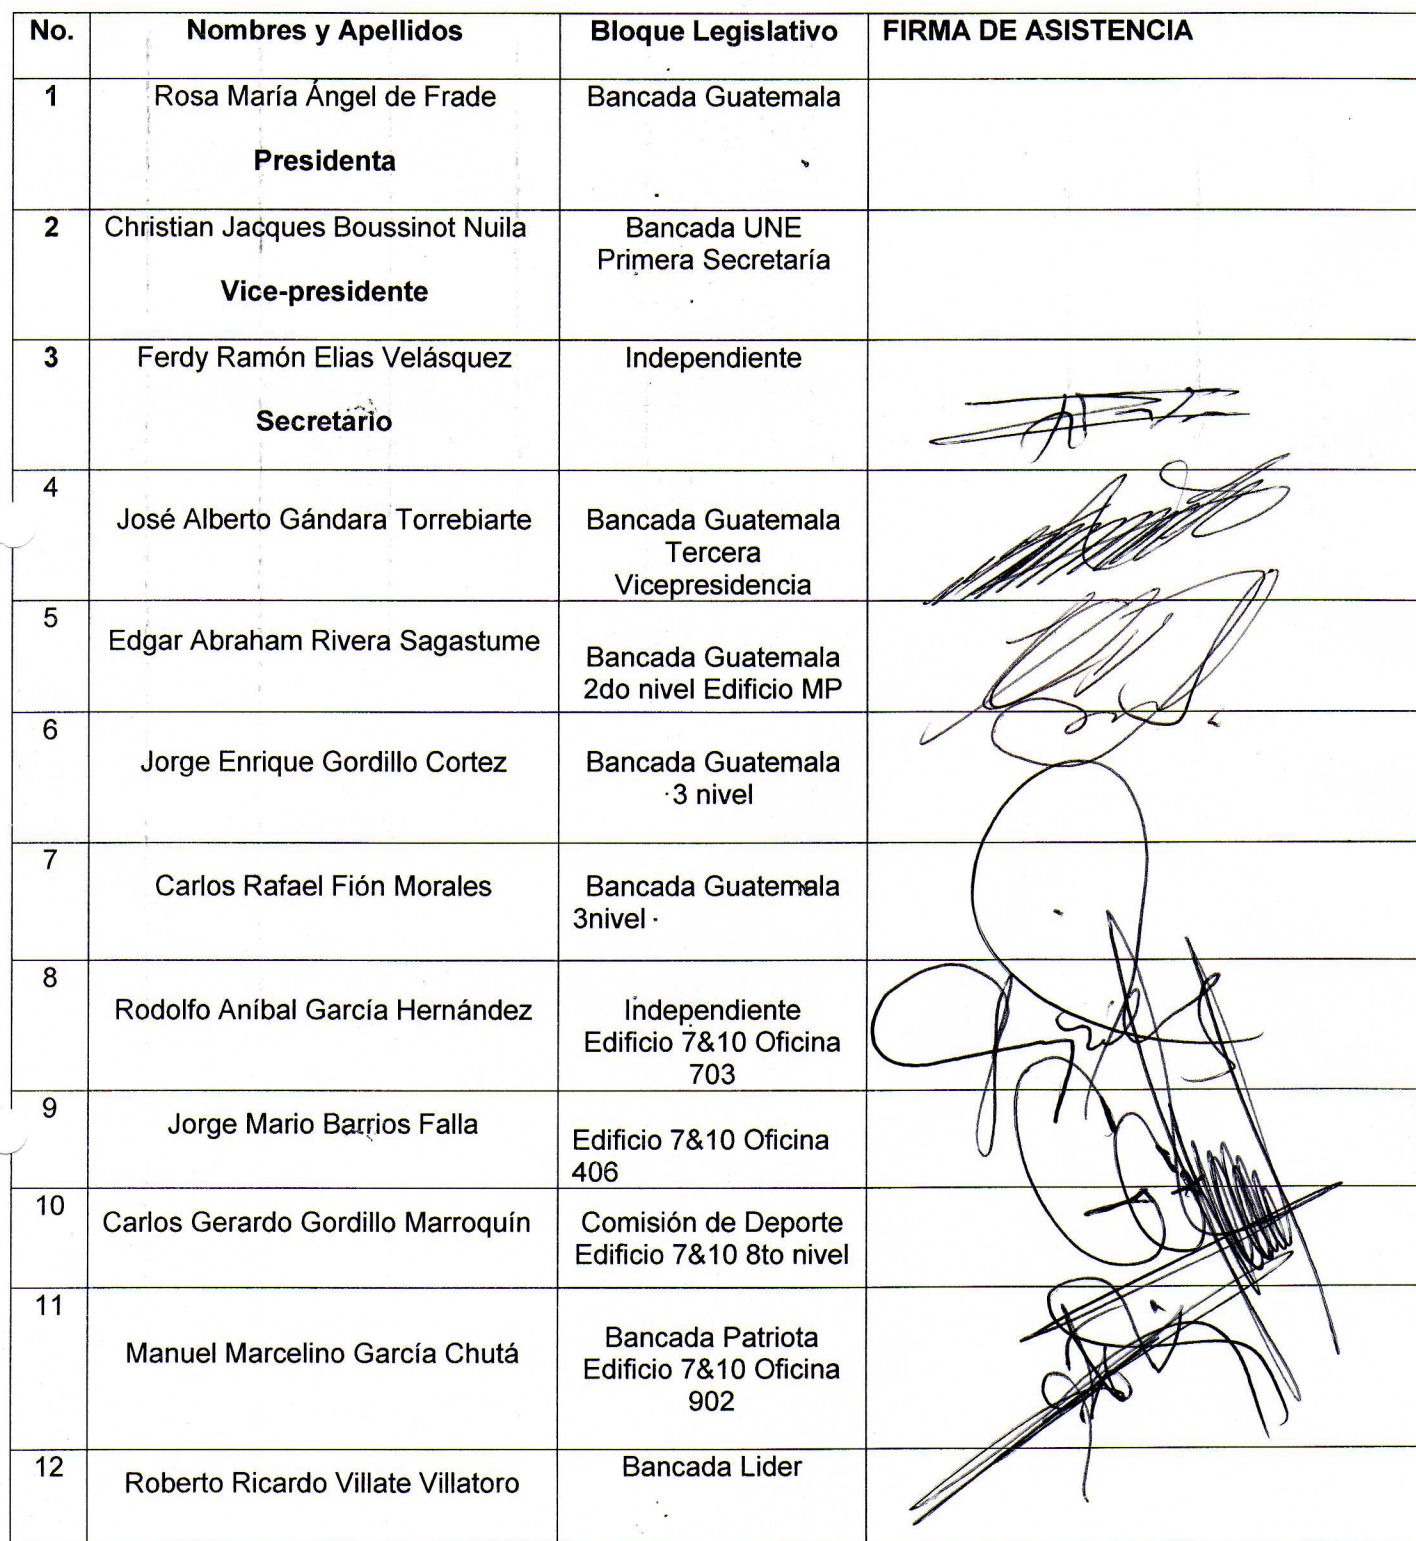 No. Nombres y Apellidos Bloque Legislativo FIRMA DE ASISTENCIA
1 Rosa María Ángel de Frade Bancada Guatemala
Presidenta
2 Christian Jacques Boussinot Nuila Bancada UNE
Primera Secretaría
Vice-presidente
3 Ferdy Ramón Elias Velásquez Independiente
Secretario
4
José Alberto Gándara Torrebiarte Bancada Guatemala
Tercera
Vicepresidencia
5
Edgar Abraham Rivera Sagastume
Bancada Guatemala
2do nivel Edificio MP
6
Jorge Enrique Gordillo Cortez Bancada Guatemala
3 nivel
7
Carlos Rafael Fión Morales Bancada Guatemala
3nivel
8
Rodolfo Aníbal García Hernández Independiente
Edificio 7&10 Oficina
703
9
Jorge Mario Barrios Falla
Edificio 7&10 Oficina
406
10
Carlos Gerardo Gordillo Marroquín Comisión de Deporte
Edificio 7&10 8to nivel
11
Bancada Patriota
Manuel Marcelino García Chutá Edificio 7&10 Oficina
902
12 Bancada Lider
Roberto Ricardo Villate Villatoro